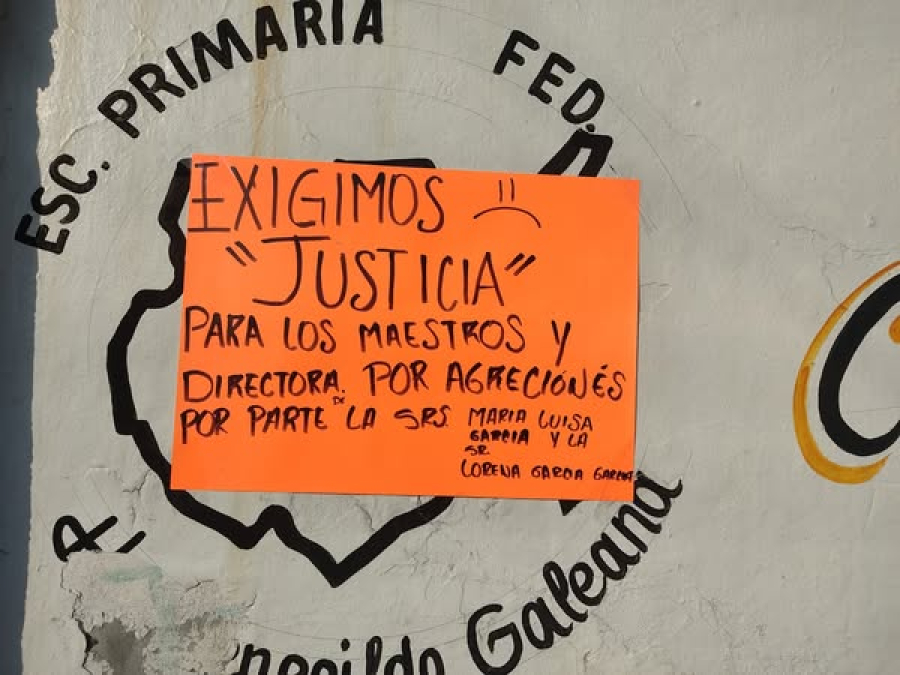 ESC. PRIMARIA FED.
EXIGIMOS
"JUSTICIA"
PARA LOS MAESTROS Y
DIRECTORA. POR AGRECIÓNÉS
POR PARTE DE LA SRS. MARIA LUISA
GARCIA Y LA
SR
LORENA GARCIA
Galeana